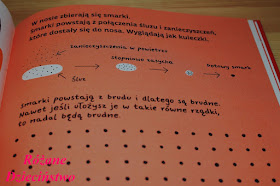 W nosie zbierają się smarki.
Smarki powstają z połączenia śluzu i zanieczyszczeń,
które dostały się do nosa. Wyglądają jak kuleczki.
zanieczyszczenia w powietrzu
stopniowe zasychanie
gotowy smark
śluz
Smarki powstają z brudu i dlatego są brudne.
Nawet jeśli ułożysz je w takie równe rządki,
to nadal będą brudne.
Różane
Dzieciństwo